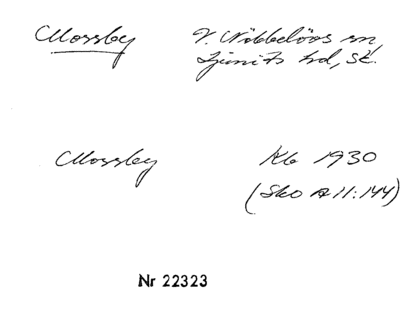 Mossby V. Nöbbelövs sn
Ljunits hd, Sk.
Mossby Kb 1930
(Sko A II:144)
Nr 22323